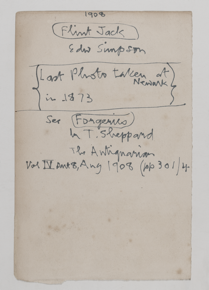 1908
Flint Jack
Edw Simpson
Last Photo taken at
Newark
in 1873
See Forgeries
in T. Sheppard
The Antiquarian
Vol IV Aug 1908 (pp 301/4